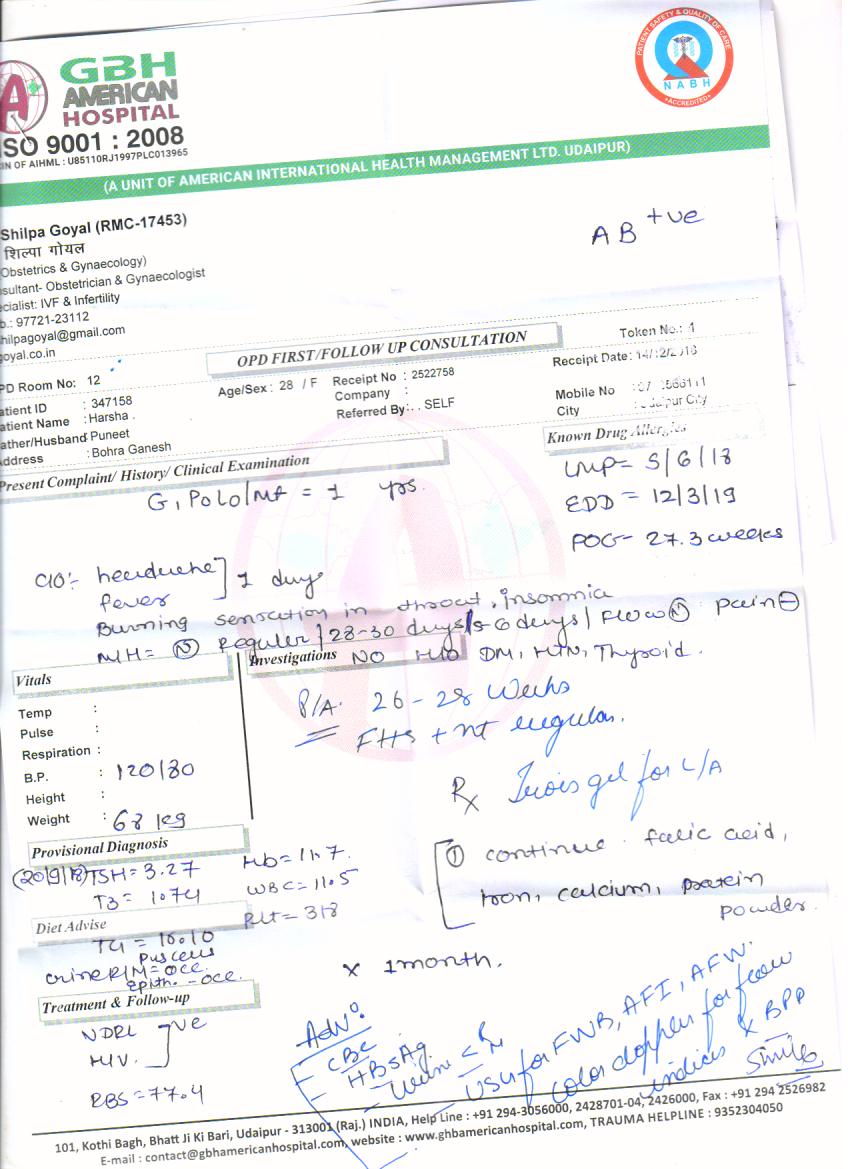 GBH
AMERICAN
HOSPITAL
ISO 9001 : 2008
CIN OF AIHML : U85110RJ1997PLC013965
PATIENT SAFETY & QUALITY OF CARE
NABH
ACCREDITED
(A UNIT OF AMERICAN INTERNATIONAL HEALTH MANAGEMENT LTD. UDAIPUR)
Shilpa Goyal (RMC-17453)
शिल्पा गोयल
Obstetrics & Gynaecology)
nsultant- Obstetrician & Gynaecologist
ecialist: IVF & Infertility
b.: 97721-23112
hilpagoyal@gmail.com
goyal.co.in
AB +ve
OPD FIRST/FOLLOW UP CONSULTATION
Token No.: 4
PD Room No: 12
Age/Sex : 28 / F
Receipt No : 2522758
Receipt Date: 14/12/2018
atient ID : 347158
Company :
Mobile No :
atient Name : Harsha .
Referred By: . SELF
City : Udaipur City
ather/Husband Puneet
Address : Bohra Ganesh
Known Drug Allergies
Present Complaint/ History/ Clinical Examination
G1P0L0/Mf = 1 yrs.
LMP= 5/6/18
EDD = 12/3/19
POG- 27.3 weeks
C/O:- headache
fever ] 1 days
Burning sensation in throat, insomnia
M/H= N Regular / 28-30 days/5-6 days/ Flow N pain -
Vitals
Investigations
NO H/O DM, HTN, Thyroid.
Temp :
Pulse :
Respiration :
B.P. : 120/80
Height :
Weight : 68 kg
P/A. 26-28 Weeks
FHS + nt regular.
Rx gel for L/A
Provisional Diagnosis
(20/9/18) TSH = 3.27
T3 = 1.74
Hb = 11.7
WBC = 11.5
Plt = 318
① continue folic acid,
Iron, calcium, protein
powder.
Diet Advise
T4 = 10.10
Urine R/M = pus cells occ.
Epith. - occ.
x 1 month.
Treatment & Follow-up
VDRL
HIV. ] -ve
RBS = 77.4
Adv:
- CBC
- HBsAg
- Urine < R/M
- USG for FWB, AFI, AFW.
color doppler for flow
indices & BPP
101, Kothi Bagh, Bhatt Ji Ki Bari, Udaipur - 313001 (Raj.) INDIA, Help Line : +91 294-3056000, 2428701-04, 2426000, Fax : +91 294 2526982
E-mail : contact@gbhamericanhospital.com, website : www.gbhamericanhospital.com, TRAUMA HELPLINE : 9352304050